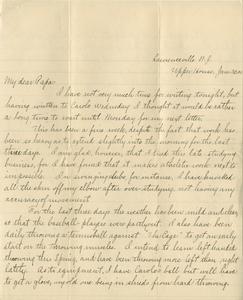 Lawrenceville N.J.
Upper House, Jan
My dear Papa:
I have not very much time for writing tonight, but
having written to Carolo Wednesday I thought it would be rather
a long time to wait until Monday for my next letter.
This has been a fine week, despite the fact that work has
been so heavy as to extend slightly into the morning for the last
three days. I am glad, however, that I tried this late studying
business, for I have found that it makes athletic work next to
impossible. I'm swinging clubs for instance, I have knocked
all the skin off my elbow after over-studying, not having any
accuracy of movement.
For the last three days the weather has been mild and clear
so that the baseball players were partly out. I also have been
daily throwing a tennis ball against "The Cage" to get an early
start on the throwing muscles. I intend to learn left handed
throwing this Spring, and have been throwing more left than right
lately. As to equipment, I have Carolo's ball but will have
to get a glove, my old one being in shreds from hard throwing.